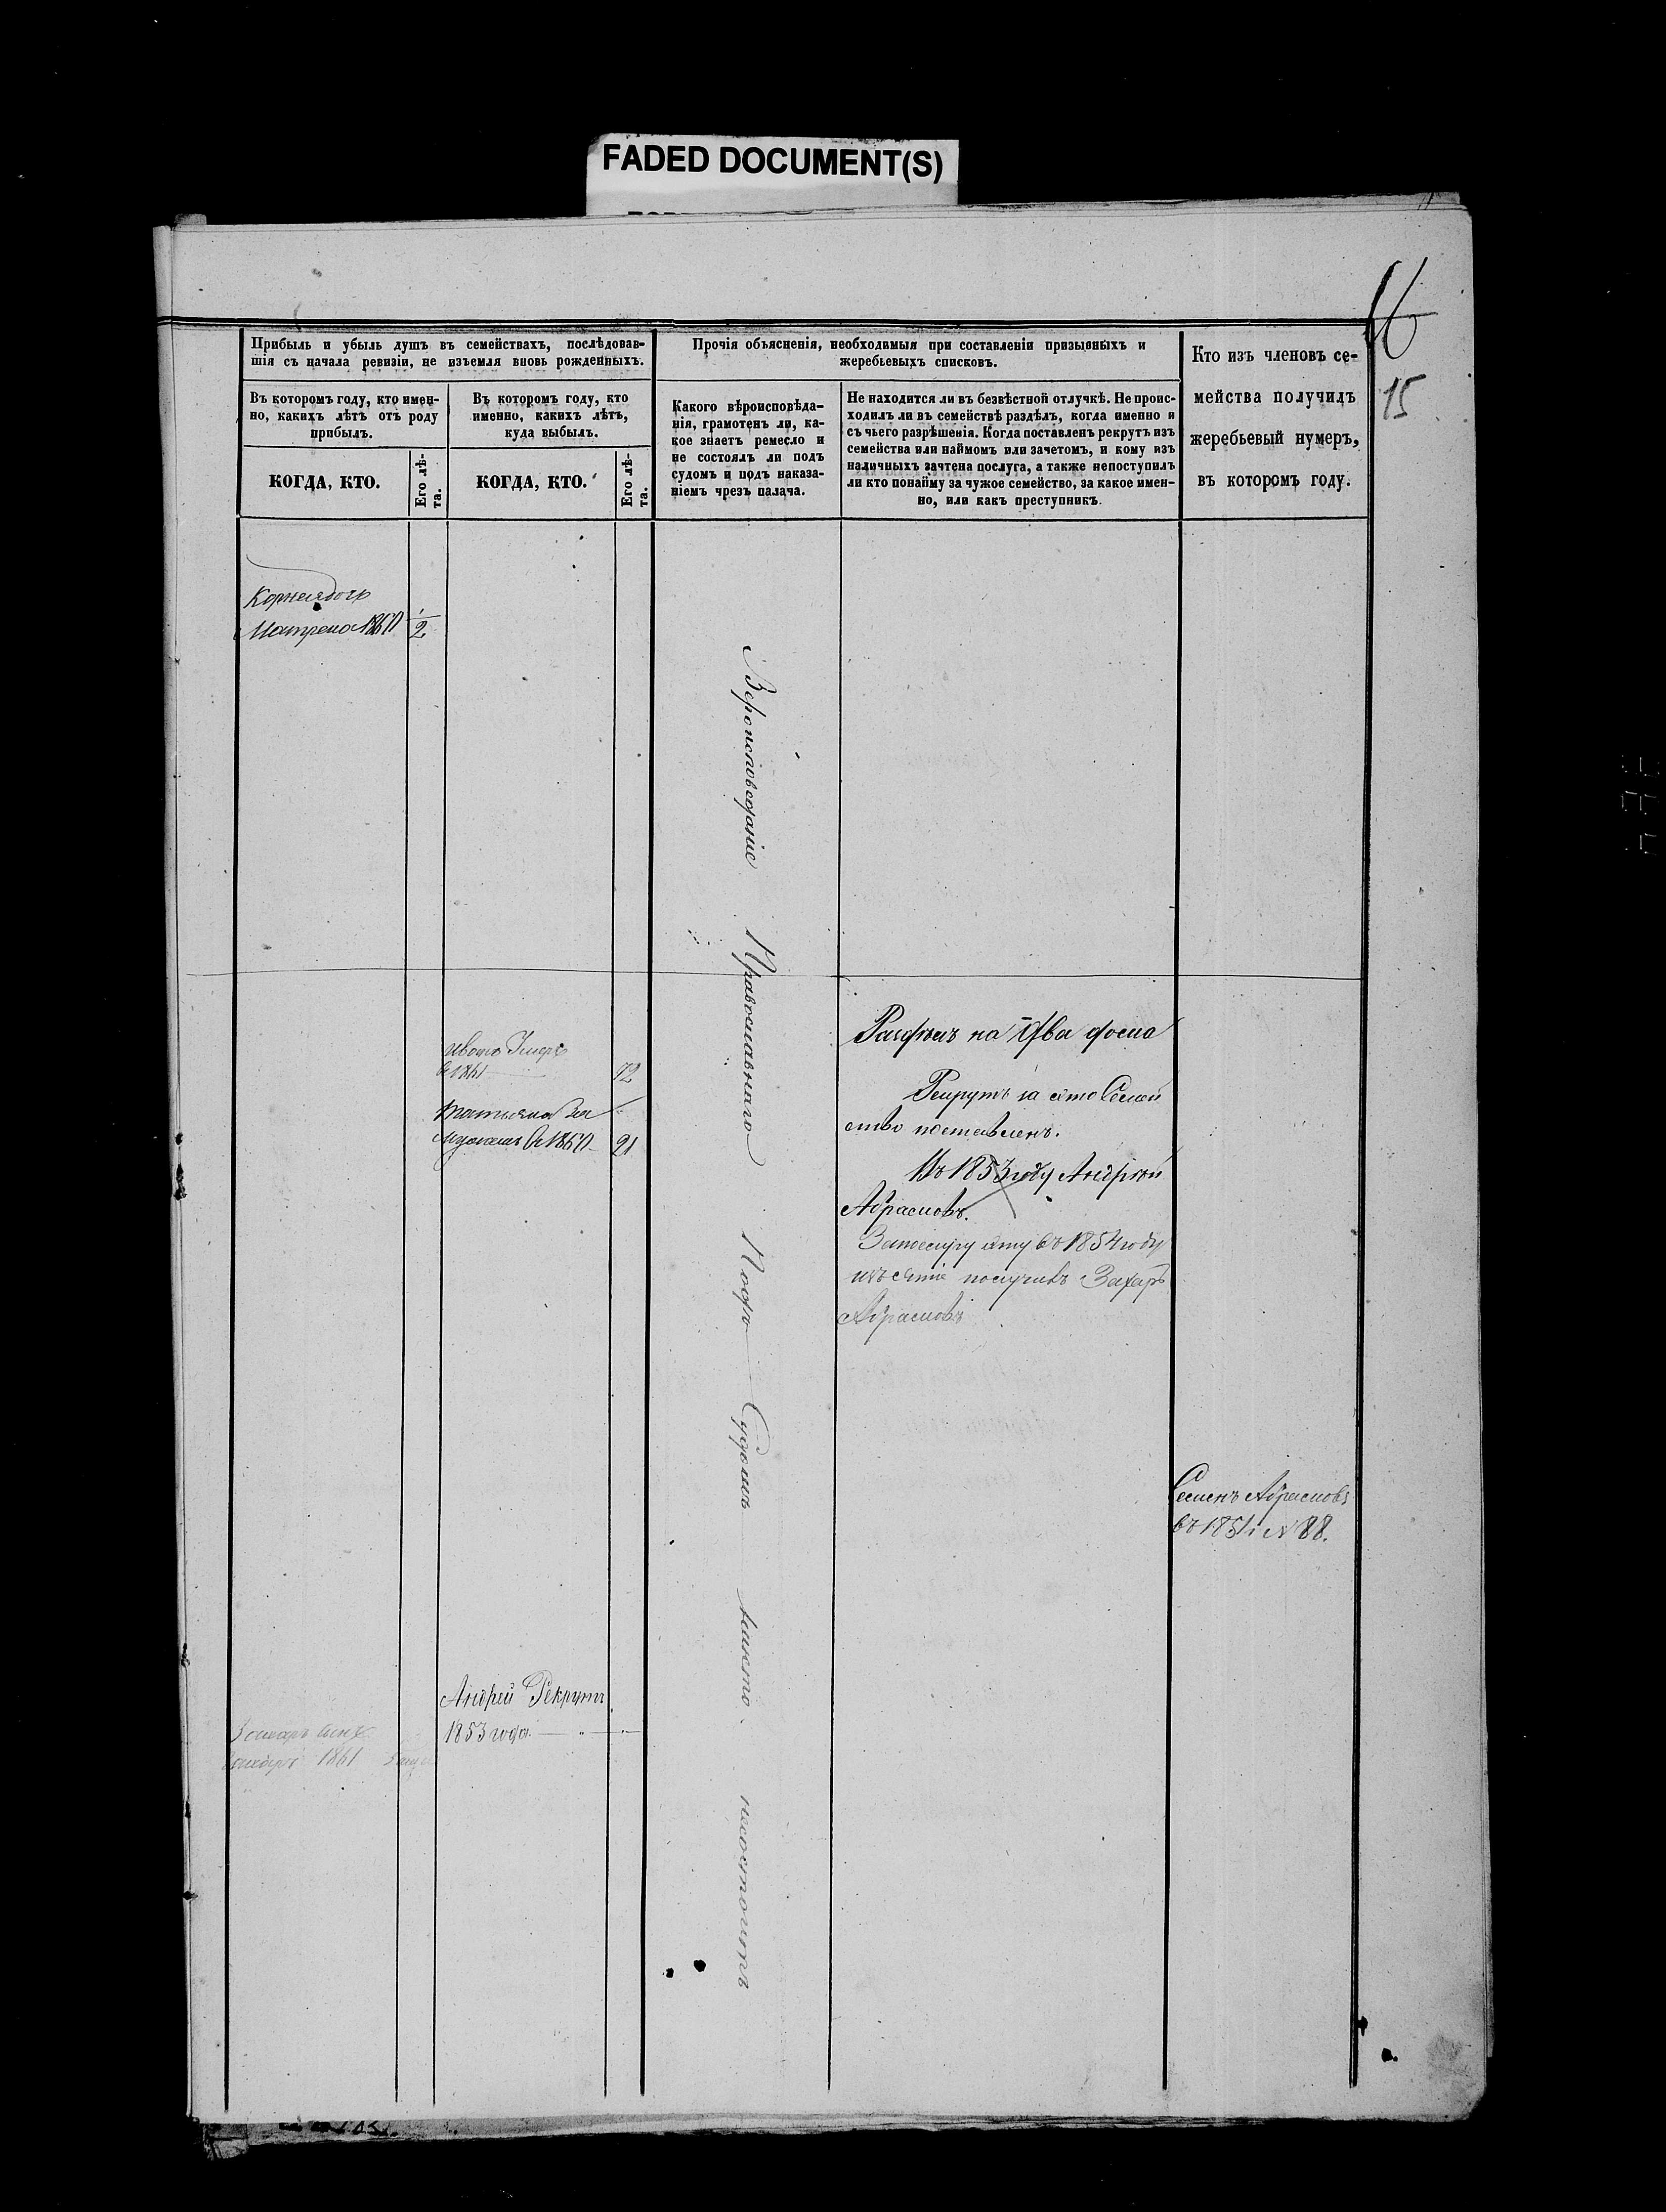 FADED DOCUMENT(S)
16
15
Прибыль и убыль душъ въ семействахъ, послѣдовав-
шія съ начала ревизіи, не изъемля вновь рожденныхъ.
Прочія объясненія, необходимыя при составленіи призывныхъ и
жеребьевыхъ списковъ.
Кто изъ членовъ се-
мейства получилъ
жеребьевый нумеръ,
въ которомъ году.
Въ которомъ году, кто имен-
но, какихъ лѣтъ отъ роду
прибылъ.
Въ которомъ году, кто
именно, какихъ лѣтъ,
куда выбылъ.
Какого вѣроисповѣда-
нія, грамотенъ ли, ка-
кое знаетъ ремесло и
не состоялъ ли подъ
судомъ и подъ наказа-
ніемъ чрезъ палача.
Не находится ли въ безвѣстной отлучкѣ. Не проис-
ходилъ ли въ семействѣ раздѣлъ, когда именно и
съ чьего разрѣшенія. Когда поставленъ рекрутъ изъ
семейства или наймомъ или зачетомъ, и кому изъ
наличныхъ зачтена послуга, а также непоступилъ
ли кто понайму за чужое семейство, за какое имен-
но, или какъ преступникъ.
КОГДА, КТО.
Его лѣ-
та.
КОГДА, КТО.
Его лѣ-
та.
Корнея дочь
Матрена 1860 1/2
Вероисповеданіе Православнаго Подъ Судомъ никто несостоитъ
Иванъ Умеръ
въ 1861 72
Татьяна За
мужемъ въ 1860 21
на два дома
Рекрутъ за ето Семей
ство поставленъ.
Въ 1853 году Андрей
Абрамовъ.
въ 1854 году
получивъ Захаръ
Абрамовъ
Семенъ Абрамовъ
въ 1851 г № 88.
Андрей Рекрутъ
1853 года
Захаръ сынъ
1861